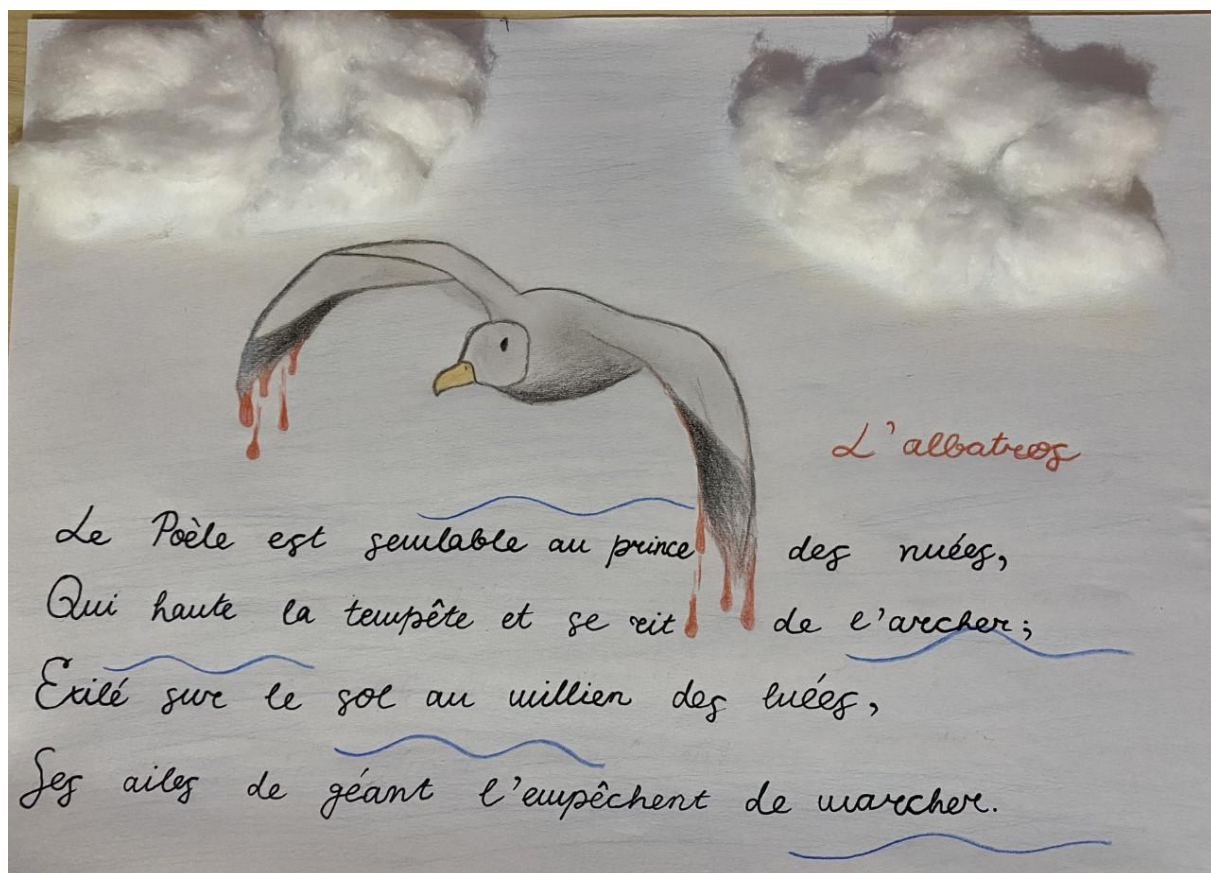 L'albatros
Le Poèle est semlable au prince des nuées,
Qui haute la tempête et se rit de l'archer;
Exilé sur le sol au millien des luées,
Ses ailes de géant l'empêchent de marcher.